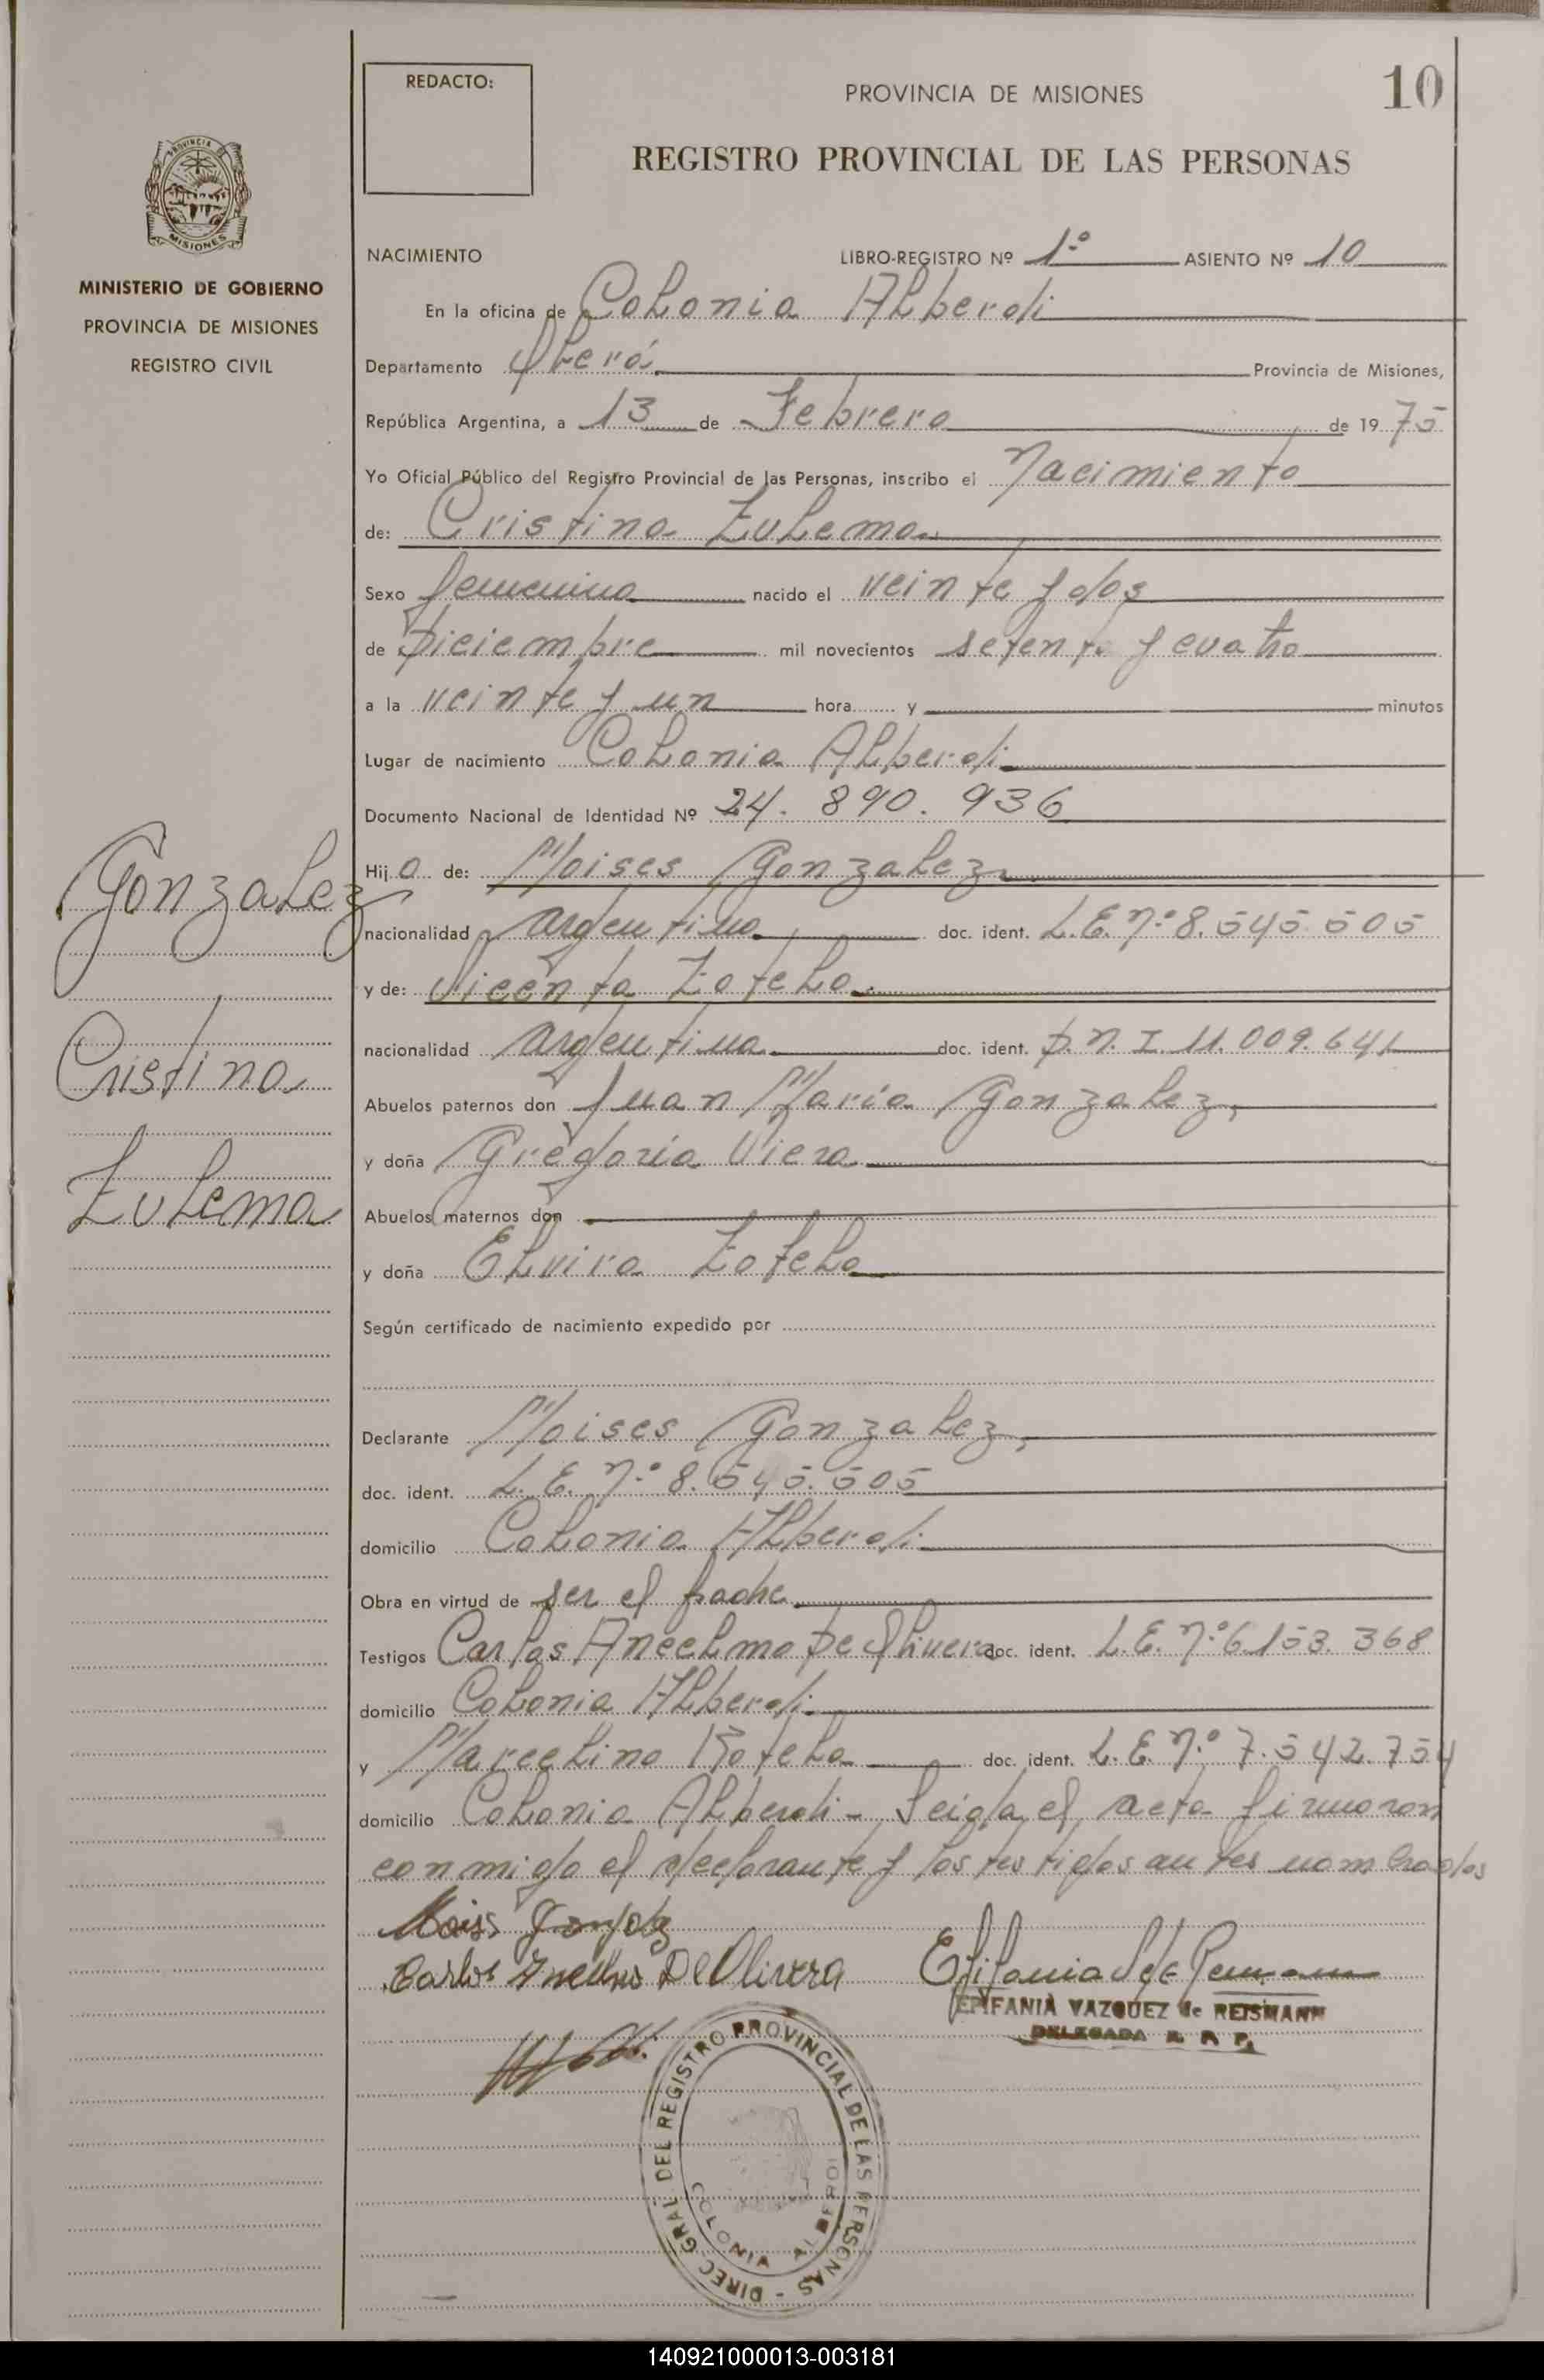 REDACTO:
PROVINCIA DE MISIONES
10
REGISTRO PROVINCIAL DE LAS PERSONAS
PROVINCIA DE MISIONES
MINISTERIO DE GOBIERNO
PROVINCIA DE MISIONES
REGISTRO CIVIL
NACIMIENTO LIBRO-REGISTRO Nº 1º ASIENTO Nº 10
En la oficina de Colonia Alberdi
Departamento Oberá Provincia de Misiones,
República Argentina, a 13 de Febrero de 19 75
Yo Oficial Público del Registro Provincial de las Personas, inscribo el Nacimiento
de: Cristina Zulema
Sexo femenino nacido el veinte y dos
de Diciembre mil novecientos setenta y cuatro
a la veinte y un hora y minutos
Lugar de nacimiento Colonia Alberdi
Documento Nacional de Identidad Nº 24.890.936
Hij a de: Moises Gonzalez
nacionalidad argentina doc. ident. L.E. Nº 8.545.505
y de: Vicenta Zotelo
nacionalidad argentina doc. ident. D.N.I. 11.009.641
Abuelos paternos don Juan Maria Gonzalez,
y doña Gregoria Viera
Abuelos maternos don
y doña Elvira Zotelo
Según certificado de nacimiento expedido por
Declarante Moises Gonzalez,
doc. ident. L.E. Nº 8.545.505
domicilio Colonia Alberdi
Obra en virtud de ser el padre
Testigos Carlos Ancelmo De Olivera doc. ident. L.E. Nº 6.153.368
domicilio Colonia Alberdi
y Marcelino Botelo doc. ident. L.E. Nº 7.542.754
domicilio Colonia Alberdi - Leida el acta firmaron
conmigo el declarante y los testigos antes nombrados
Gonzalez
Cristina
Zulema
Carlos De Olivera
EPIFANIA VAZQUEZ de REISMANN
DELEGADA R. P. P.
DIREC. GRAL. DEL REGISTRO PROVINCIAL DE LAS PERSONAS -
COLONIA ALBERDI
140921000013-003181